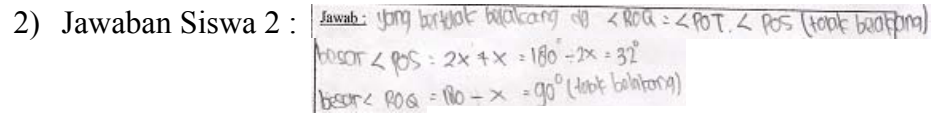 2) Jawaban Siswa 2 :
Jawab : yang bertolak belakang dg < ROQ = < POT. < POS (tolak belakang)
besar < POS = 2x + x = 180° - 2x = 32°
besar < ROQ = 180 - x = 90° (tolak belakang)